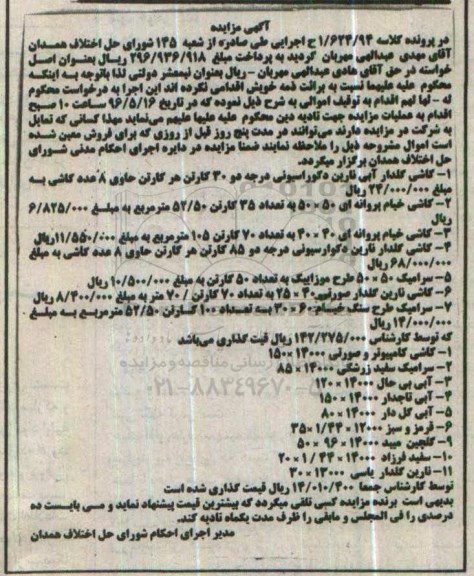 آگهی مزایده
در پرونده کلاسه ۱/۶۲۴/۹۴ ح اجرایی طی صادره از شعبه ۱۴۵ شورای حل اختلاف همدان
آقای مهدی عبدالهی مهربان گردید به پرداخت مبلغ ۲۹۶/۹۳۶/۹۱۸ ریال بعنوان اصل
خواسته در حق آقای هادی عبدالهی مهربان - ریال بعنوان نیمعشر دولتی لذا باتوجه به اینکه
محکوم علیه علیهما نسبت به برائت ذمه خویش اقدامی نکرده اند این اجرا به درخواست محکوم
له - لها لهم اقدام به توقیف اموالی به شرح ذیل نموده که در تاریخ ۹۶/۵/۱۶ ساعت ۱۰ صبح
اقدام به عملیات مزایده جهت تادیه دین محکوم علیه علیها علیهم می‌نماید مهذا کسانی که تمایل
به شرکت در مزایده دارند می‌توانند در مدت پنج روز قبل از روزی که برای فروش معین شده
است اموال مشروحه ذیل را ملاحظه نمایند ضمنا مزایده در دایره اجرای احکام مدنی شورای
حل اختلاف همدان برگزار میگردد.
۱- کاشی گلدار آبی نارین دکوراسیونی درجه دو ۳۰ کارتن هر کارتن حاوی ۸ عدد کاشی به
مبلغ ۲۴/۰۰۰/۰۰۰ ریال
۲- کاشی خیام پروانه ای ۵۰×۵۰ به تعداد ۳۵ کارتن ۵۲/۵۰ مترمربع به مبلغ ۶/۸۲۵/۰۰۰
ریال
۳- کاشی خیام پروانه ای ۴۰×۴۰ به تعداد ۷۰ کارتن ۱۰۵ مترمربع به مبلغ ۱۱/۵۵۰/۰۰۰ ریال
۴- کاشی گلدار نارین دکوارسیونی درجه دو ۸۵ کارتن هر کارتن حاوی ۸ عدد کاشی به مبلغ
۶۸/۰۰۰/۰۰۰ ریال
۵- سرامیک ۵۰×۵۰ طرح موزاییک به تعداد ۵۰ کارتن به مبلغ ۱۰/۵۰۰/۰۰۰ ریال
۶- کاشی نارین گلدار صورتی ۴۰×۲۵ به تعداد ۷۰ کارتن / ۷۰ متر به مبلغ ۸/۴۰۰/۰۰۰ ریال
۷- سرامیک طرح سنگ خیام ۶۰×۳۰ به تعداد ۱۰۰ کارتن ۵۲/۵۰ مترمربع به مبلغ
۱۴/۰۰۰/۰۰۰ ریال
که توسط کارشناس ۱۴۲/۲۷۵/۰۰۰ ریال قیت گذاری می‌باشد
۱- کاشی کامپیوتر و صورتی ۱۴۰۰۰×۱۵۰
۲- سرامیک سفید زرشکی ۱۴۰۰۰×۸۵
۳- آبی بی حال ۱۴۰۰۰×۱۲۰
۴- آبی تاجدار ۱۴۰۰۰×۱۵۰
۵- آبی گل دار ۱۴۰۰۰×۸۰
۶- قرمز و سبز ۱۲۰۰۰×۱/۴۴×۳۵
۹- گلچین میبد ۱۴۰۰۰×۹۶×۵۰
۱۰- سفید فرزاد ۱۴۰۰۰×۱/۴۴×۲۰
۱۱- نارین گلدار یاسی ۱۳۰۰۰×۳۰
توسط کارشناس جمعا ۱۴/۰۱۰/۴۰۰ ریال قیمت گذاری شده است
بدیهی است برنده مزایده کسی تلقی میگردد که بیشترین قیمت پیشنهاد نماید و می بایست ده
درصدی را فی المجلس و مابقی را ظرف مدت یکماه تادیه کند.
مدیر اجرای احکام شورای حل اختلاف همدان